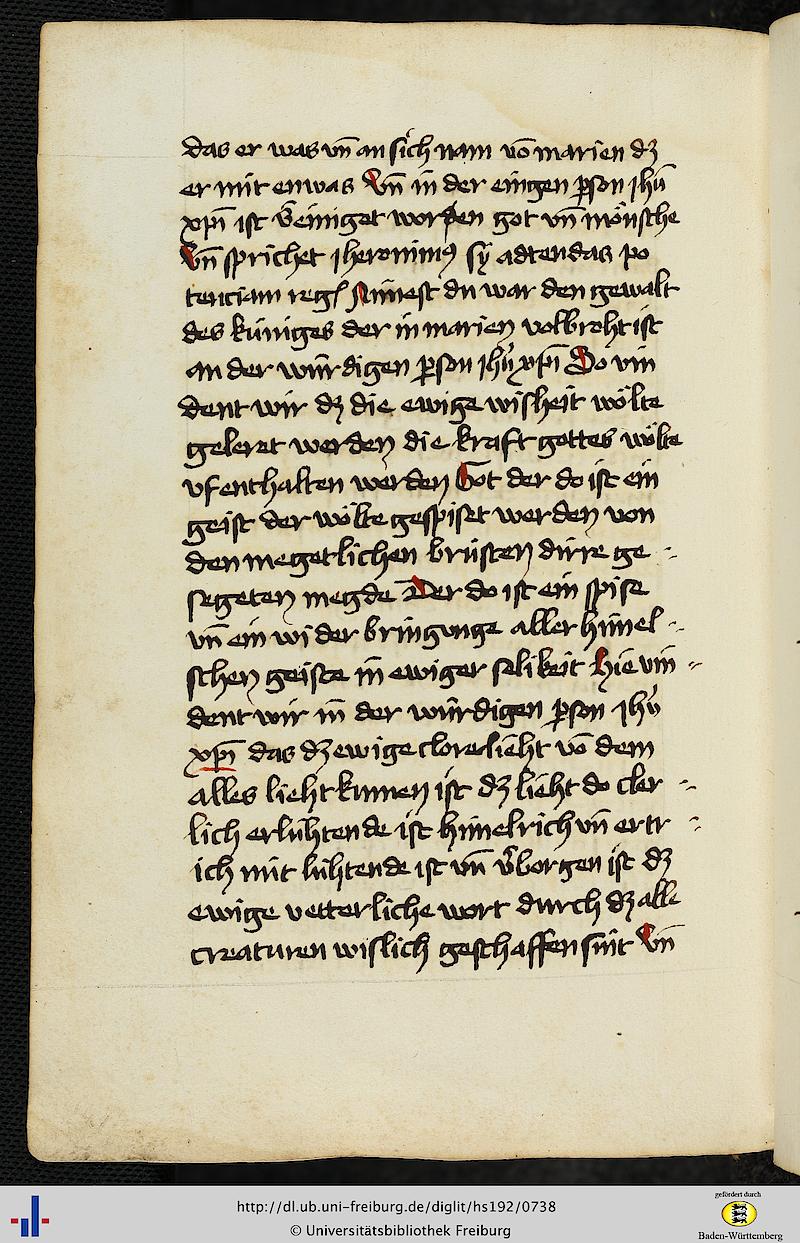 das er was vn̄ an sich nam vō marien dʒ
er mit enwas Vn̄ in der eingen ꝑson jhū
xpi̅ ist v̄einiget worden got vn̄ mönsche
Vn̄ sprichet jheronimꝰ sÿ adtendas po
tenciam reg Nimest du war den gewalt
des küniges der in marien volbroht ist
an der würdigen ꝑson jhū xpi̅ So vin
dent wir dʒ die ewige wisheit wölte
geleret werden die kraft gottes wölte
vfenthalten werden Got der do ist ein
geist der wölte gespiset werden von
den megetlichen brüsten dirre ge
segeten megde Der do ist ein spise
vn̄ ein wider bringunge aller himel
schen geiste in ewiger selikeit Hie vin
dent wir in der würdigen ꝑson jhū
xpi̅ das dʒ ewige clore lieht vō dem
alles lieht kumen ist dʒ lieht do cler
lich erlühtende ist himelrich vn̄ ertr
ich mit lühtende ist vn̄ v̄borgen ist dʒ
ewige vetterliche wort durch dʒ alle
creaturen wislich geschaffen sint Vn̄
http://dl.ub.uni-freiburg.de/diglit/hs192/0738
© Universitätsbibliothek Freiburg
gefördert durch
Baden-Württemberg